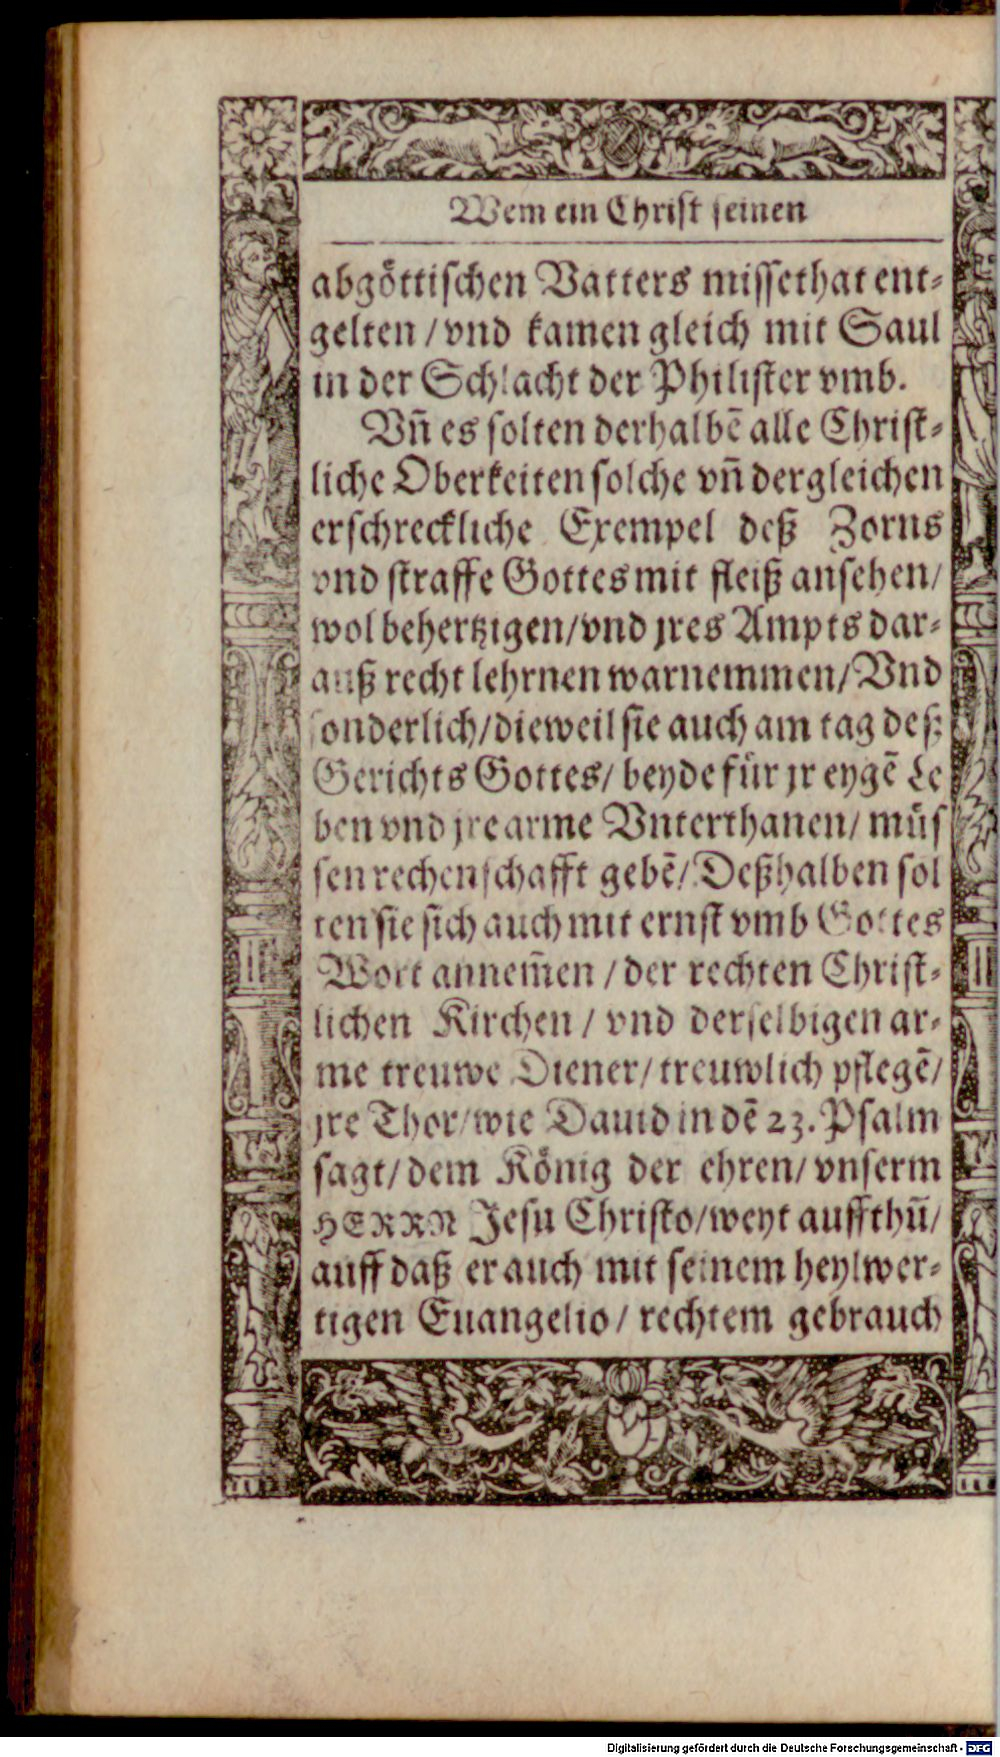 Wem ein Christ seinen
abgöttischen Vatters missethat ent-
gelten / vnd kamen gleich mit Saul
in der Schlacht der Philister vmb.
Vñ es solten derhalbẽ alle Christ-
liche Oberkeiten solche vñ dergleichen
erschreckliche Exempel deß Zorns
vnd straffe Gottes mit fleiß ansehen/
wol behertzigen/vnd jres Ampts dar-
auß recht lehrnen warnemmen/ Vnd
sonderlich/dieweil sie auch am tag deß
Gerichts Gottes/ beyde für jr eygẽ Le
ben vnd jre arme Vnterthanen/ müs
sen rechenschafft gebẽ/ Deßhalben sol
ten sie sich auch mit ernst vmb Gottes
Wort annem̃en / der rechten Christ-
lichen Kirchen / vnd derselbigen ar-
me treuwe Diener/ treuwlich pflegẽ/
jre Thor/wie Dauid in dẽ 23. Psalm
sagt/ dem König der ehren/ vnserm
HERRN Jesu Christo/weyt auffthũ/
auff daß er auch mit seinem heylwer-
tigen Euangelio / rechtem gebrauch
Digitalisierung gefördert durch die Deutsche Forschungsgemeinschaft - DFG